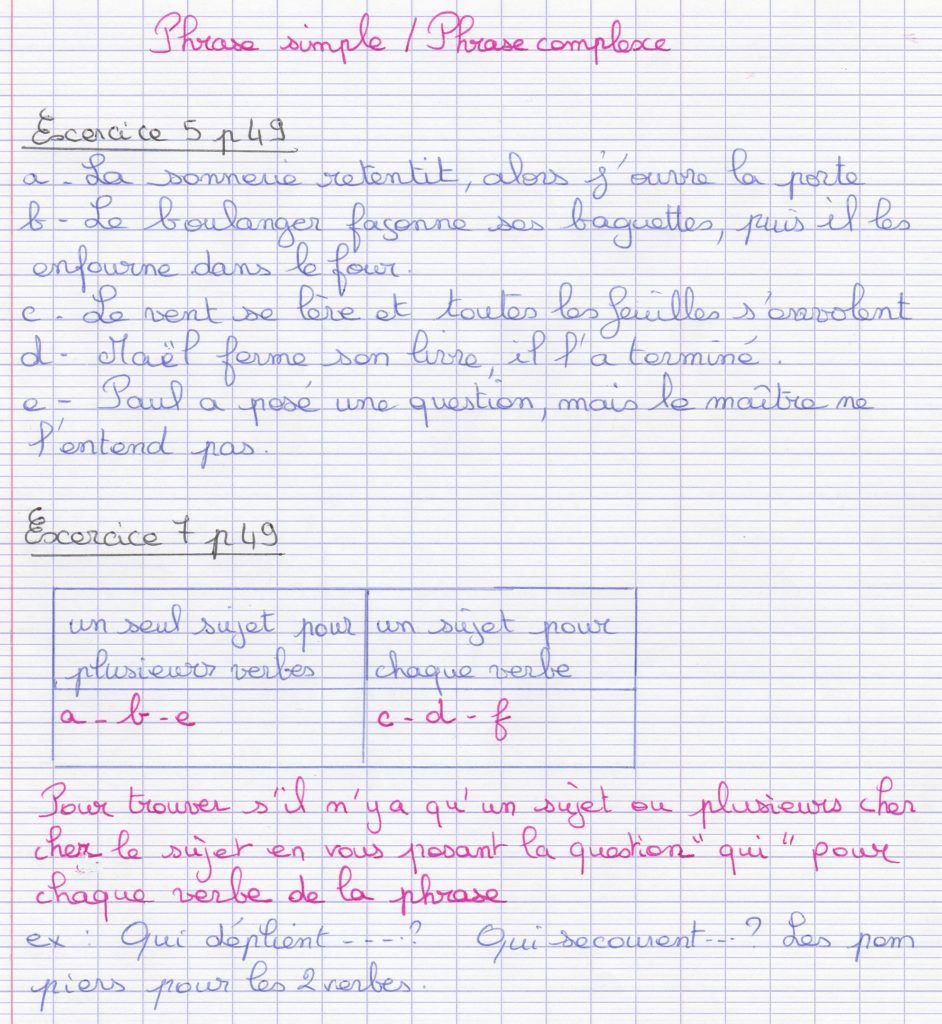 Phrase simple / Phrase complexe
Exercice 5 p 49
a - La sonnerie retentit, alors j'ouvre la porte
b - Le boulanger façonne ses baguettes, puis il les
enfourne dans le four.
c - Le vent se lève et toutes les feuilles s'envolent
d - Maël ferme son livre, il l'a terminé.
e - Paul a posé une question, mais le maître ne
l'entend pas.
Exercice 7 p 49
un seul sujet pour
plusieurs verbes
un sujet pour
chaque verbe
a - b - e
c - d - f
Pour trouver s'il n'y a qu'un sujet ou plusieurs cher
cher le sujet en vous posant la question " qui " pour
chaque verbe de la phrase
ex : Qui déplient ----? Qui secourent---? Les pom
piers pour les 2 verbes.